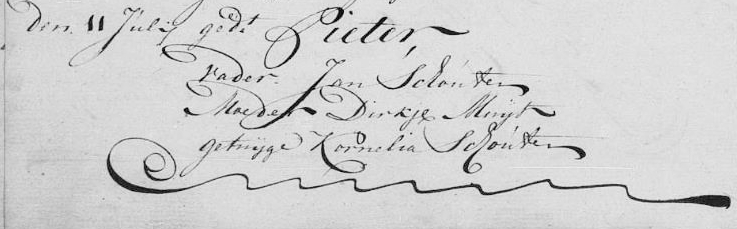 Den 11 Julij gedt Pieter,
Vader Jan Schouten
Moeder Dirkje Muijt
getuijge Kornelia Schouten